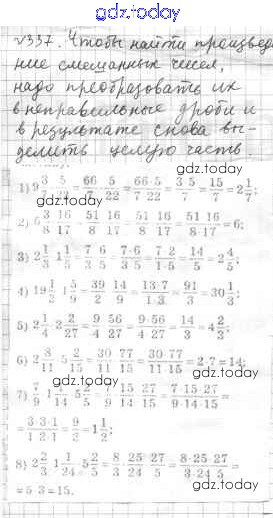 gdz.today
№337. Чтобы найти произведе-
ние смешанных чисел,
надо преобразовать их
в неправильные дроби и
в результате снова вы-
делить целую часть.
1) 9 3/7 · 5/22 = 66/7 · 5/22 = 66·5/7·22 = 3·5/7 = 15/7 = 2 1/7;
2) 6 3/8 · 16/17 = 51/8 · 16/17 = 51·16/8·17 = 6;
gdz.today
3) 2 1/3 · 1 1/5 = 7/3 · 6/5 = 7·6/3·5 = 7·2/1·5 = 14/5 = 2 4/5;
gdz.today
4) 19 1/2 · 1 5/9 = 39/2 · 14/9 = 13·7/1·3 = 91/3 = 30 1/3;
5) 2 1/4 · 2 2/27 = 9/4 · 56/27 = 9·56/4·27 = 14/3 = 4 2/3;
6) 2 8/11 · 5 2/15 = 30/11 · 77/15 = 30·77/11·15 = 2·7 = 14;
gdz.today
7) 7/9 · 1 1/14 · 5 2/5 = 7/9 · 15/14 · 27/5 = 7·15·27/9·14·5 =
= 3·3·1/1·2·1 = 9/2 =
gdz.today
8) 2 2/3 · 1 1/24 · 5 2/5 = 8/3 · 25/24 · 27/5 = 8·25·27/3·24·5 =
= 5·3 = 15.
gdz.today